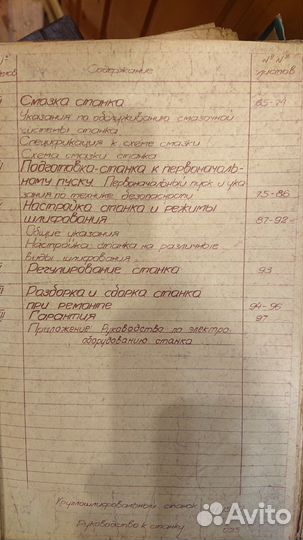 № Содержание № №
листов
Смазка станка 65-74
Указания по обслуживанию смазочной
системы станка
Спецификация к схеме смазки
Схема смазки станка
Подготовка станка к первоначаль-
ному пуску. Первоначальный пуск и ука
зания по технике безопасности 75-86
Настройка станка и режимы
шлифования 87-92
Общие указания
Настройка станка на различные
виды шлифования
Регулирование станка 93
Разборка и сборка станка
при ремонте 94-96
Гарантия 97
Приложение Руководство по электро
оборудованию станка
Круглошлифовальный станок
Руководство к станку
Avito